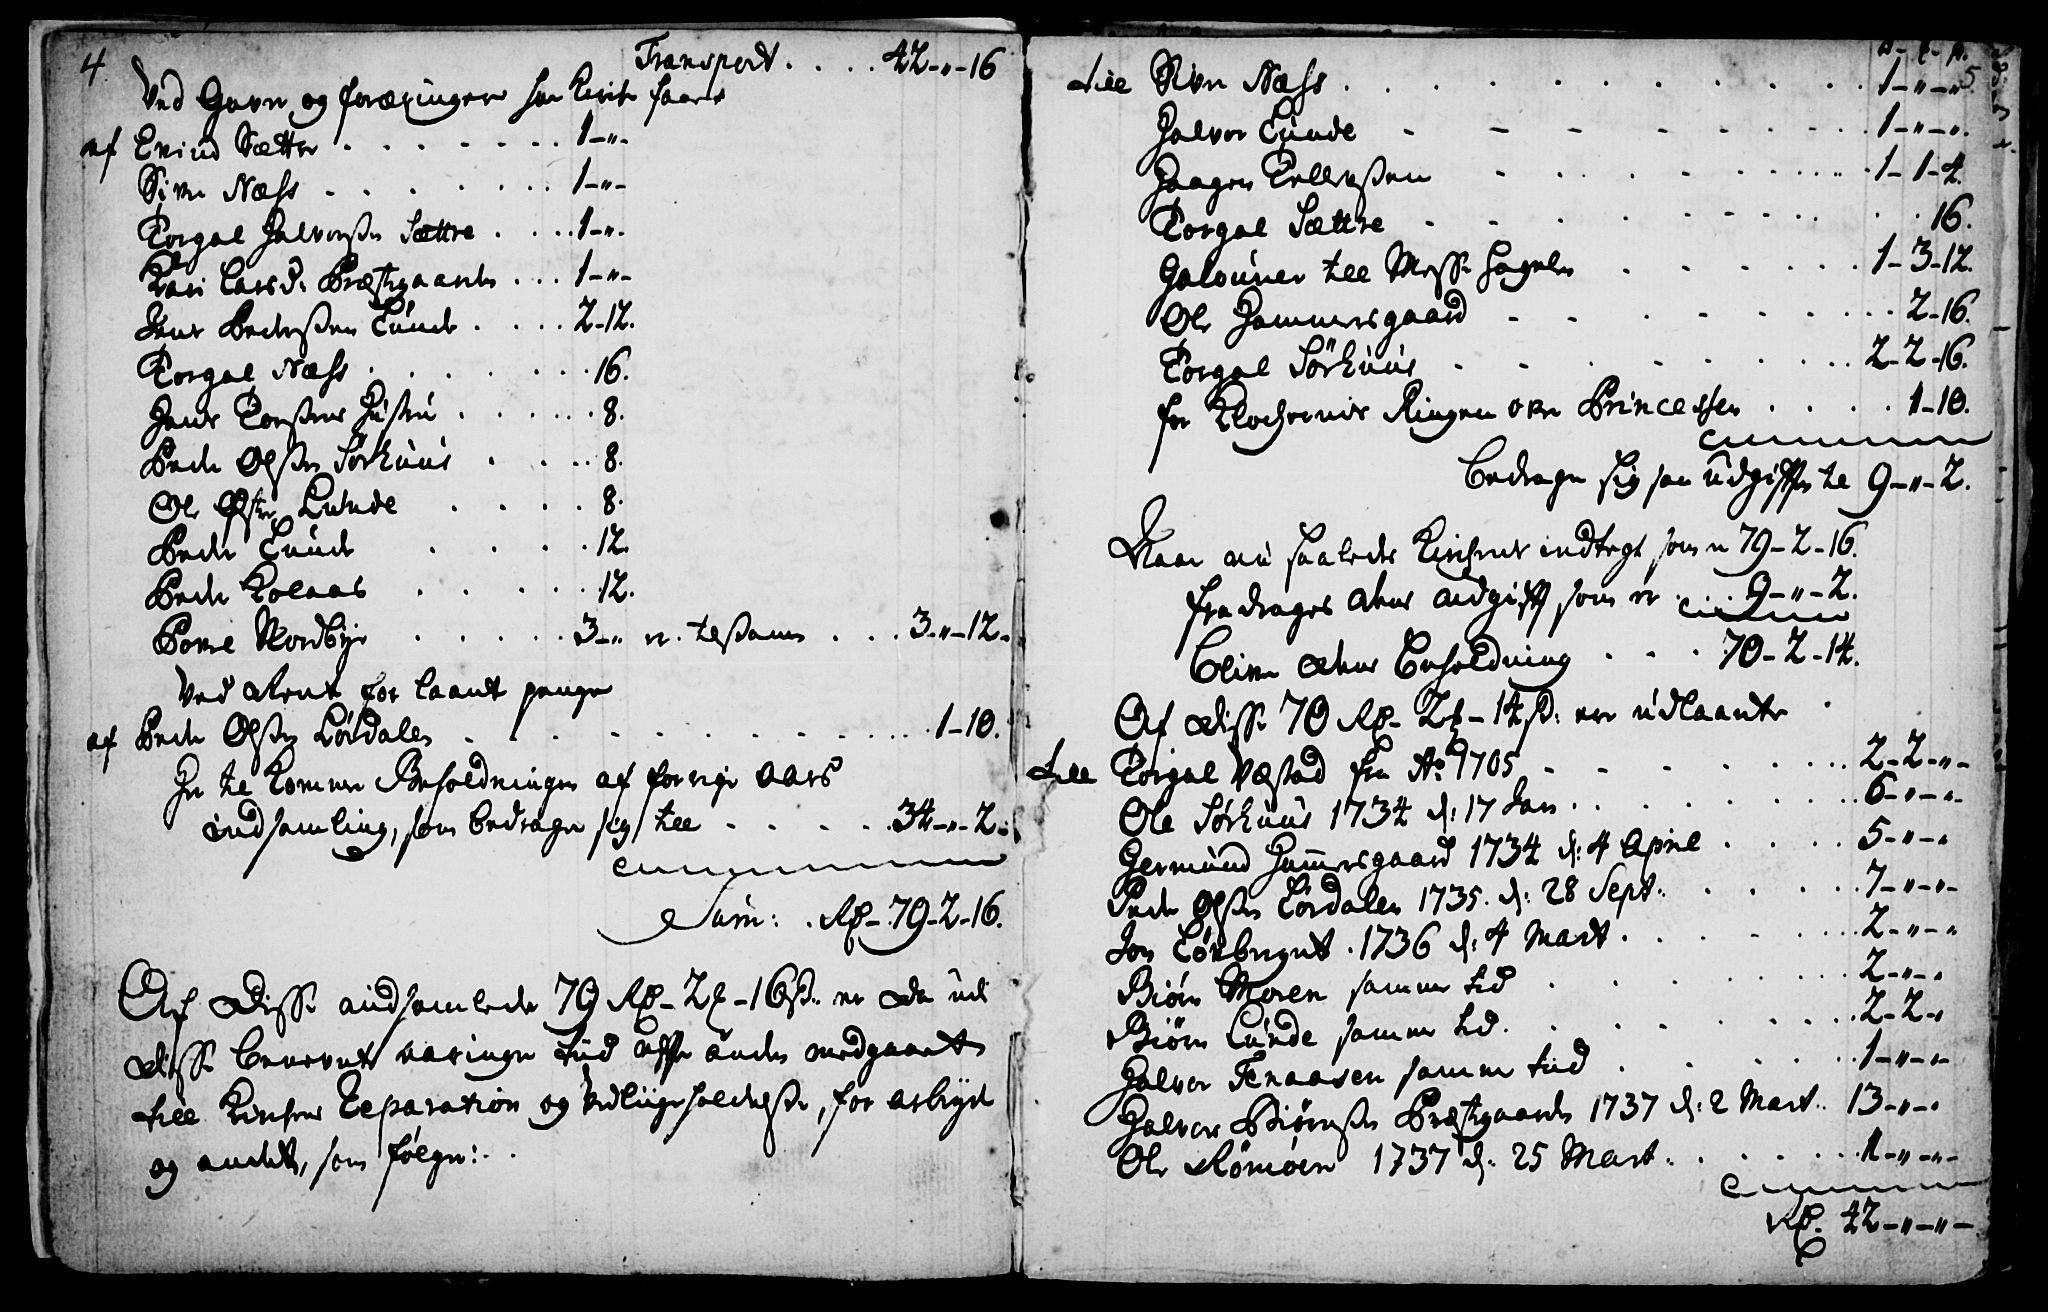 4
Transport . . . . 42-"-16
Ved Gaver og foræringer har Kirken faaet
af Evind Sætter . . . . . . . 1-"-
Siver Næss . . . . . . . 1-"-
Torgal Halvorsen Sættre . . . . 1-"-
Kari Larsd: Præstgaarden . . . 1-"-
Jens Pedersen Lunde . . . . 2-12.
Torgal Næss . . . . . . . 16.
Hans Torstens Hustru . . . . . 8.
Peder Olsen Sørhuus . . . . 8.
Ole Olsen Lunde . . . . 8.
Peder Lunde . . . . 12.
Peder Kolaas . . . . . 12.
Povel Nordbye . . . . . 3-" er tilsamen . . . 3-"-12-
Ved Rent for laant penge
af Peder Olsen Lørdalen . . . . . . . . . . . 1-10.
Her til kommer Beholdningen af forrige aars
indsamling, som bedrager sig till . . . . . 34-"-2.
Sum: . Rd- 79-2-16.
Af disse indsamlede 79 Rd- 2 - 16 s: er da udi
disse benevnte aaringer tiid efter anden medgaaet
till Kirkens Reparation og Vedligeholdelse, for arbeyd
og andet, som følger: . .
5
till Siver Næss . . . . . . . . . 1-"-".
Halvor Lunde - - - - - . . . . 1-"-".
Haagen Tellefsen . . . . . . . . 1-1-4.
Torgal Sættre . . . . . . . . 16.
Galouner till Messe Hagelen . . . . . . 1-3-12.
Ole Hammersgaard . . . . . . . . 2-16.
Torgal Sørhuus . . . . . . . . 2-2-16.
for Klockernis Ringen over Princessen . . . . 1-10.
bedrager sig saa Udgiften til 9-"-2.
Naar nu saaledes Kirkens indtegt som er 79-2-16.
fradrages dens udgift som er . . . 9-"-2.
bliver dens Beholdning . . . 70-2-14.
Af disse 70 Rd- 2 - 14 s: er udlaante
till Torgal Væstad fra Ao 1705 - - - - - . . . 2-2-"-
Ole Sørhuus 1734 d: 17 Jan . . . . . . . . 6-"-".
Germund Hammersgaard 1734 d: 4 April . . . . 5-"-"
Peder Olsen Lørdalen 1735. d: 28 Sept: . . . . . 7-"-"-
Jon Lørberget . 1736 d: 4 Mart . . . . . . . 2-"-"
Biørn Moren samme tid . . . . . . . . 2-"-.
Biørn Lunde samme tid. . . . . . . . 2-2-"
Halvor Fenaasen samme tiid . . . . . . 1-"-"-
Halvor Biørnsen Præstgaarden 1737 d: 2 Mart: 13-"-"
Ole Rømoen 1737 d: 25 Mart: . . . . . . 1-"-"-
Rd. 42-"-"-